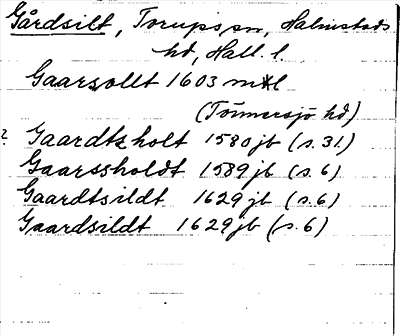 Gårdsilt, Torups sn, Halmstads
hd, Hall. l.
Gaarsollt 1603 mtl
(Tönnersjö hd)
? Gaardtzholt 1580 jb (s. 31)
Gaarssholdt 1589 jb (s. 6)
Gaardtsildt 1629 jb (s. 6)
Gaardsildt 1629 jb (s. 6)